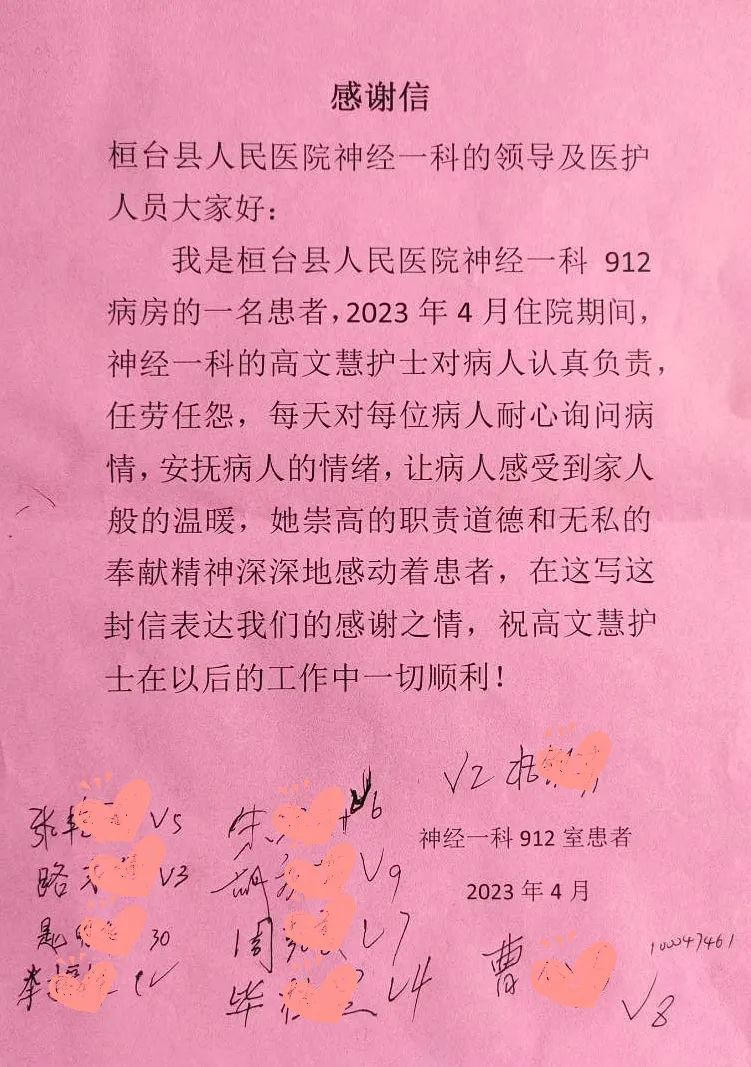 感谢信
桓台县人民医院神经一科的领导及医护
人员大家好：
我是桓台县人民医院神经一科 912
病房的一名患者，2023 年 4 月住院期间，
神经一科的高文慧护士对病人认真负责，
任劳任怨，每天对每位病人耐心询问病
情，安抚病人的情绪，让病人感受到家人
般的温暖，她崇高的职责道德和无私的
奉献精神深深地感动着患者，在这写这
封信表达我们的感谢之情，祝高文慧护
士在以后的工作中一切顺利！
V2
张 V5
朱
神经一科 912 室患者
路 V3
胡 V9
2023 年 4 月
30
周 V7
曹
李
毕 V4
V8